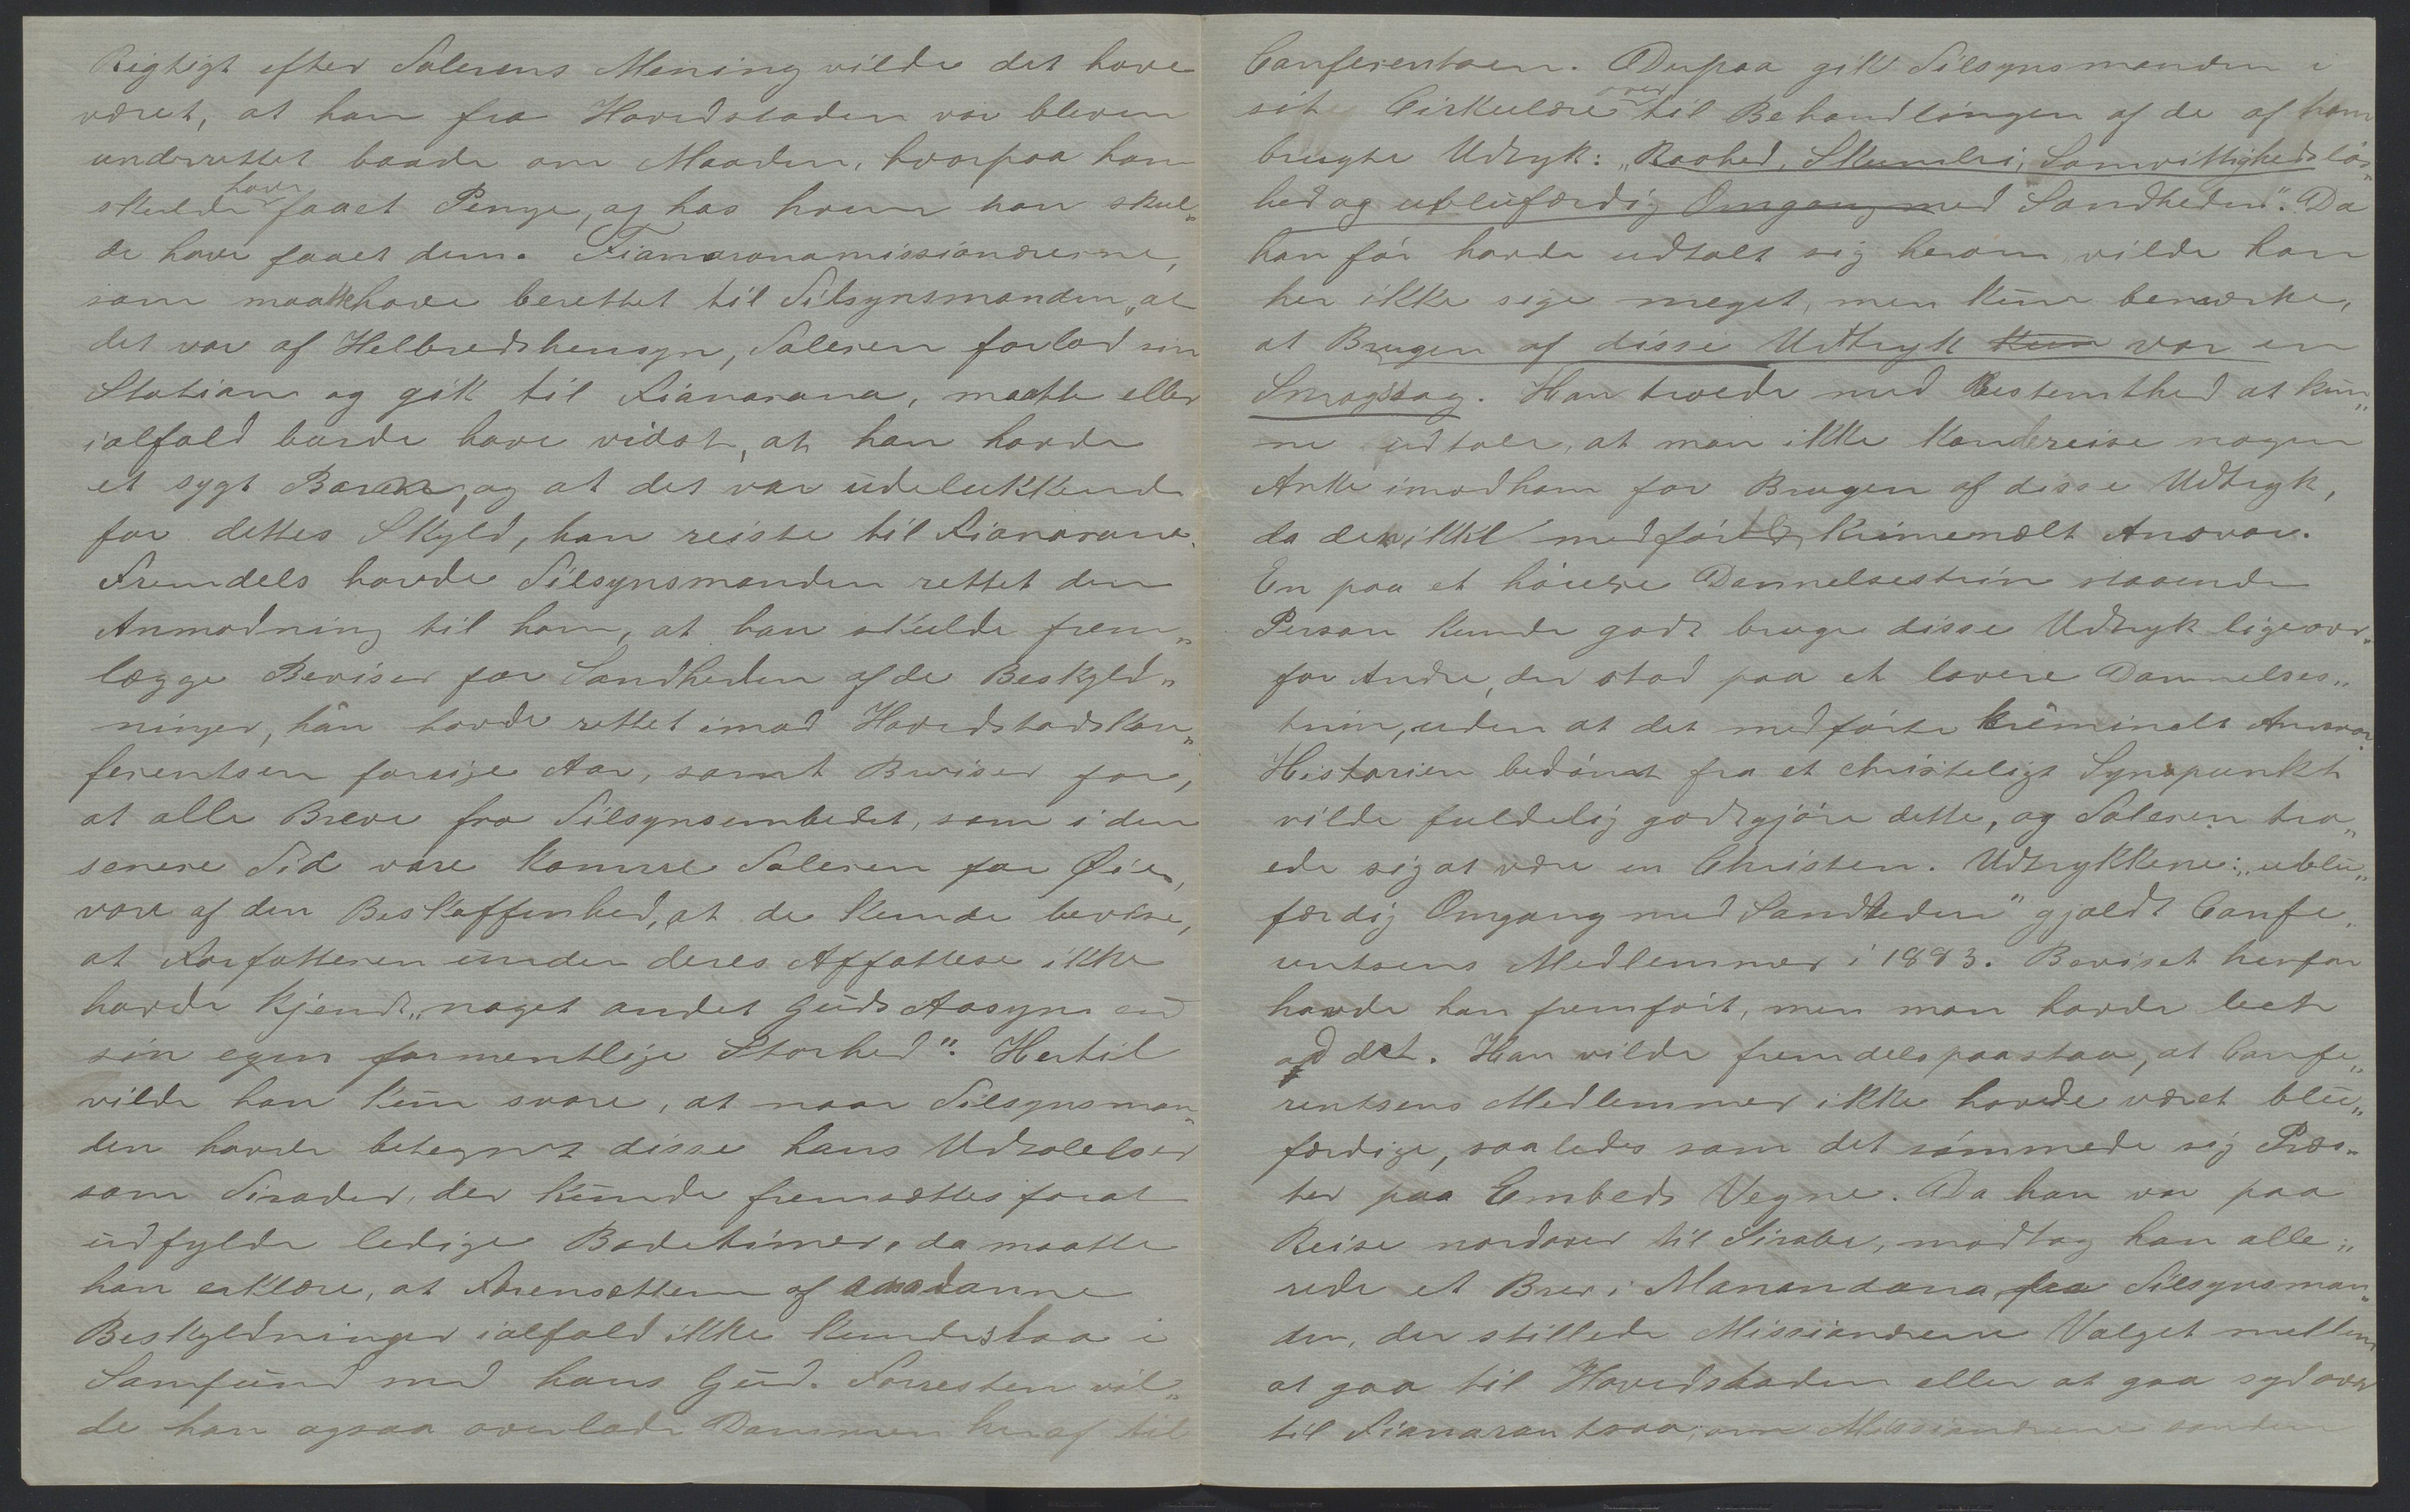 Rigtigt efter Talerens Mening vilde det have
været, at han fra Hovedstaden var bleven
underrettet baade om Maaden, hvorpaa han
skulde have faaet Penge, og hos hvem han skul„
de have faaet dem. Fianaronamissionærerne,
som maatte have berettet til Tilsynsmanden, at
det var af Helbredshensyn, Taleren forlod sin
Station og gik til Fianarona, maatte eller
ialfald burde have vidst, at han havde
et sygt Barn, og at det var udelukkende
for dettes Skyld, han reiste til Fianarona.
Fremdels havde Tilsynsmanden rettet den
Anmodning til ham, at han skulde frem„
lægge Beviser for Sandheden af de Beskyld„
ninger, han havde rettet imod Hovedstadskon„
ferentsen forrige Aar, samt Beviser for,
at alle Breve fra Tilsynsembedet, som i den
senere Tid vare komne Taleren for Øie,
vare af den Beskaffenhed, at de kunde bevise,
at Forfatteren under deres Affattelse ikke
havde kjendt „noget andet Guds Aasyn end
sin egen formentlige Storhed". Hertil
vilde han kun svare, at naar Tilsynsman„
den havde betegnet disse hans Udtalelser
som Tirader, der kunde fremsættes forat
udfylde ledige Badetimer, da maatte
han erklære, at Fremsætteren af saadanne
Beskyldninger ialfald ikke kunde staa i
Samfund med hans Gud. Forresten vil„
de han ogsaa overlade Dommen heraf til
Conferentsen. Derpaa gik Tilsynsmanden i
sit Cirkulære over til Behandlingen af de af ham
brugte Udtryk: „Raahed, Skumleri, Samvittighedsløs„
hed og ublufærdig Omgang med Sandheden". Da
han før havde udtalt sig herom, vilde han
her ikke sige meget, men kun bemærke,
at Brugen af disse Udtryk kun var en
Smagssag. Han troede med Bestemthed at kun„
ne udtale, at man ikke kunde reise nogen
Anke imod ham for Brugen af disse Udtryk,
da den ikke medførte kriminelt Ansvar.
En paa et høiere Dannelsestrin staaende
Person kunde godt bruge disse Udtryk ligeover„
for Andre, der stod paa et lavere Dannelses„
trin, uden at det medførte kriminelt Ansvar.
Historien bedømt fra et christeligt Synspunkt
vilde fuldelig godtgjøre dette, og Taleren tro„
ede sig at være en Christen. Udtrykkene: „ublu„
færdig Omgang med Sandheden" gjaldt Confe„
rentsens Medlemmer i 1883. Beviset herfor
havde han fremført, men man havde leet
ad det. Han vilde fremdeles paastaa, at Confe„
rentsens Medlemmer ikke havde været blu„
færdige, saaledes som det sømmede sig Præs„
ter paa Embeds Vegne. Da han var paa
Reise nordover til Sirabe, modtog han alle„
rede et Brev i Manandona fra Tilsynsman„
den, der stillede Missionærerne Valget mellem
at gaa til Hovedstaden eller at gaa sydover
til Fianarantsoa; om Missionærerne